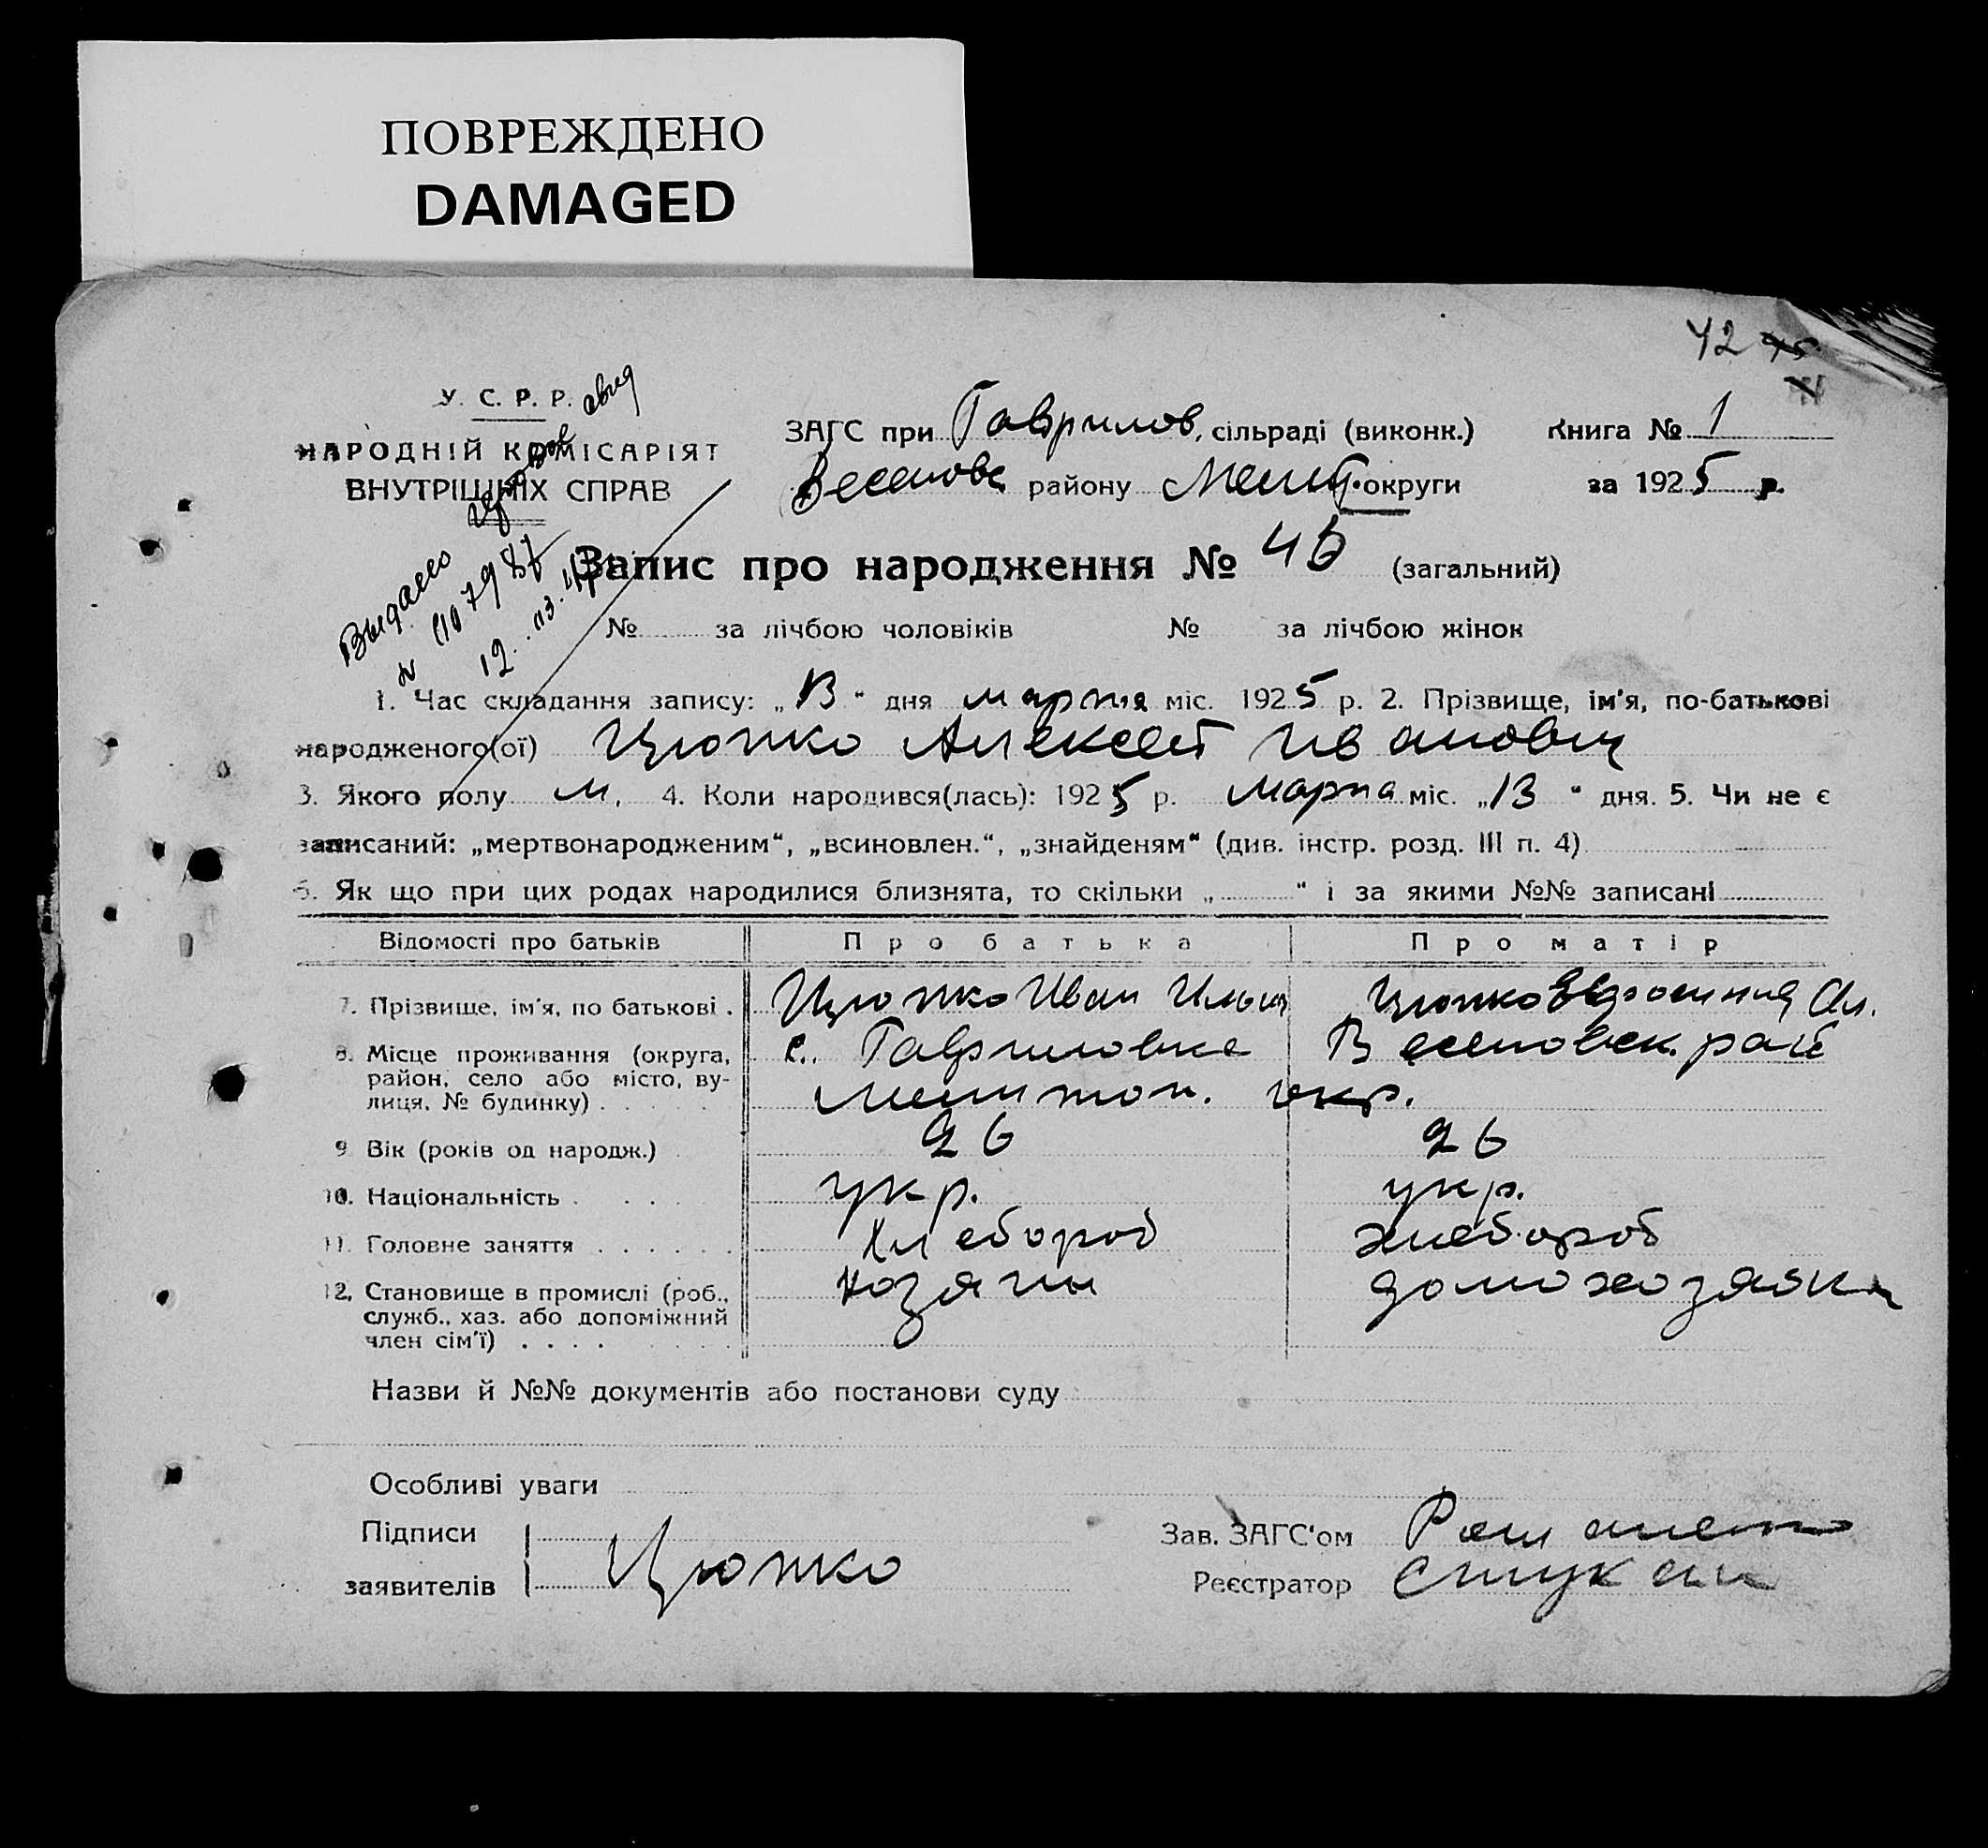 ПОВРЕЖДЕНО
DAMAGED
42
У. С. Р. Р.
НАРОДНІЙ КОМІСАРІЯТ
ВНУТРІШНІХ СПРАВ
ЗАГС при Гаврилов. сільраді (виконк.) Книга № 1
Веселовс району Мелит. округи за 1925 р.
Выдано
12.03.
Запис про народження № 45 (загальний)
№ за лічбою чоловіків № за лічбою жінок
1. Час складання запису: „13“ дня марта міс. 1925 р. 2. Прізвище, ім'я, по-батькові
народженого(ої) Цюпко Алексей Иванович
3. Якого полу м. 4. Коли народився(лась): 1925 р. марта міс. „13“ дня. 5. Чи не є
записаний: „мертвонародженим“, „всиновлен.“, „знайденям“ (див. інстр. розд. III п. 4)
6. Як що при цих родах народилися близнята, то скільки „ “ і за якими №№ записані
Відомості про батьків Про батька Про матір
7. Прізвище, ім'я, по батькові . Цюпко Иван Ильич Цюпко Евдокиния Ал.
8. Місце проживання (округа, с. Гавриловка Веселовск. рай
район, село або місто, ву-
лиця, № будинку) . Мелитоп. окр.
9 Вік (років од народж.) 26 26
10. Національність . укр. укр.
11. Головне заняття . Хлебороб хлебороб
12. Становище в промислі (роб., хозяин домохозяйка
служб., хаз. або допоміжний
член сім'ї)
Назви й №№ документів або постанови суду
Особливі уваги
Підписи
заявителів Цюпко
Зав. ЗАГС'ом
Реєстратор Стукан